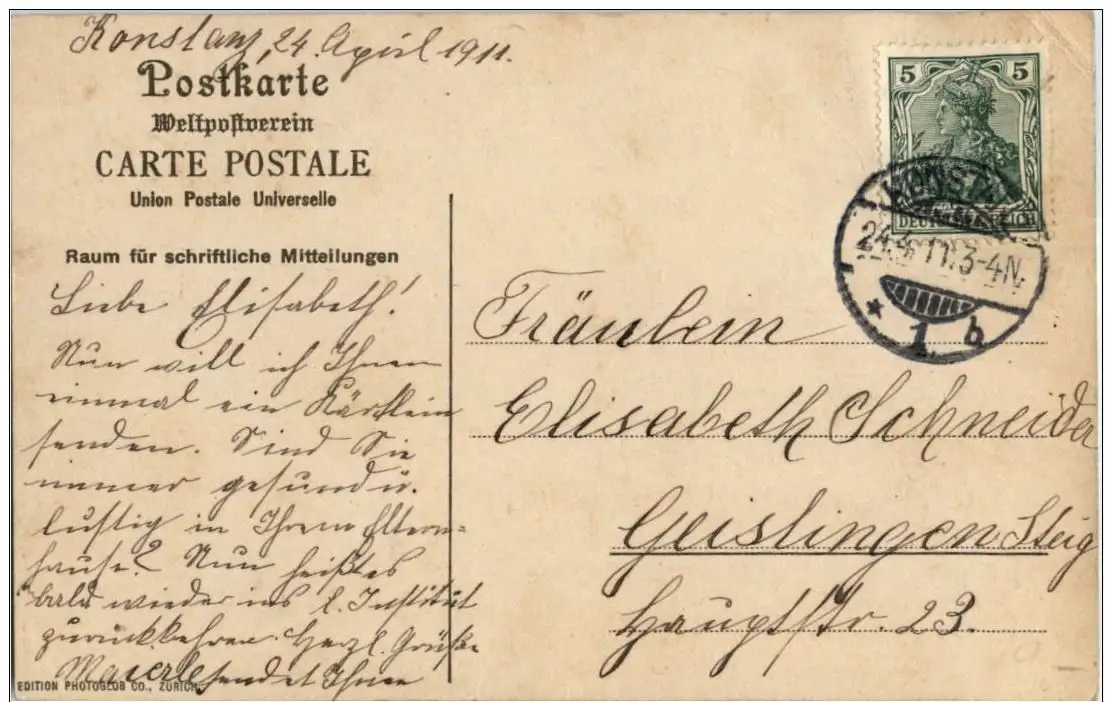 Konstanz, 24. April 1911.
Postkarte
Weltpostverein
CARTE POSTALE
Union Postale Universelle
Raum für schriftliche Mitteilungen
Liebe Elisabeth!
Nun will ich Ihnen
einmal ein Kärtlein
senden. Sind Sie
immer gesund u.
lustig in Ihrem Eltern-
hause? Nun heißt es
bald wieder ins l. Institut
zurückkehren. Herzl. Grüße
sendet Ihnen
Maierle
EDITION PHOTOGLOB CO., ZÜRICH
5 5
DEUTSCHES REICH
KONSTANZ
24.4.11.3-4N.
* 1. b
Fräulein
Elisabeth Schneider
Geislingen Steig
Hauptstr. 23.